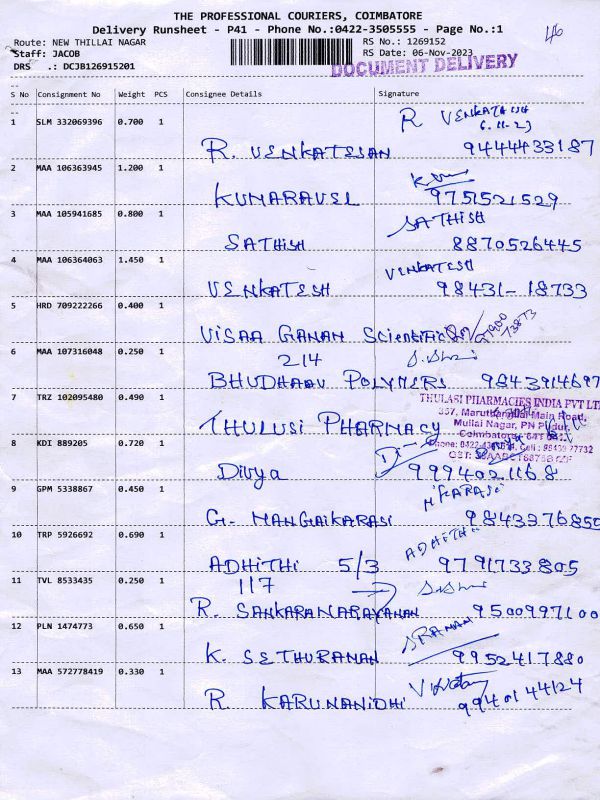 THE PROFESSIONAL COURIERS, COIMBATORE
Delivery Runsheet - P41 - Phone No.:0422-3505555 - Page No.:1
46
Route: NEW THILLAI NAGAR
RS No.: 1269152
Staff: JACOB
RS Date: 06-Nov-2023
DRS .: DCJB126915201
DOCUMENT DELIVERY
S No Consignment No Weight PCS Consignee Details Signature
1 SLM 332069396 0.700 1
R VENKATESH
6.11.23
R. VENKATESAN 9444433187
2 MAA 106363945 1.200 1
KUMARAVEL 9751521529
3 MAA 105941685 0.800 1
SATHISH
SATHISH 8870526445
4 MAA 106364063 1.450 1
VENKATESH
VENKATESH 98431-18733
5 HRD 709222266 0.400 1
VISAA GANAN Scientific
73873
6 MAA 107316048 0.250 1
214
BHUDHAAU POLYMERS 9843914697
7 TRZ 102095480 0.490 1
THULASI PHARMACIES INDIA PVT LTD
357, Maruthamalai Main Road,
Mullai Nagar, PN Pudur,
Coimbatore
THULUSI PHARMACY
8 KDI 889205 0.720 1
Divya 9994021168
9 GPM 5338867 0.450 1
G. MANGAIKARASI 9843376855
10 TRP 5926692 0.690 1
ADHITHI
ADHITHI 5/3 9791733805
11 TVL 8533435 0.250 1
117
R. SANKARANARAYANAN 9500997100
12 PLN 1474773 0.650 1
K. SETHURAMAN 9952417880
13 MAA 572778419 0.330 1
R KARUNANIDHI 9940144124